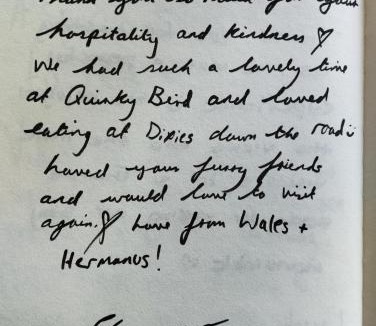 Thank you so much for your
hospitality and kindness ♡
We had such a lovely time
at Quirky Bird and loved
eating at Dixies down the road
Loved your furry friends
and would love to visit
again. ♡ Love from Wales +
Hermanus!